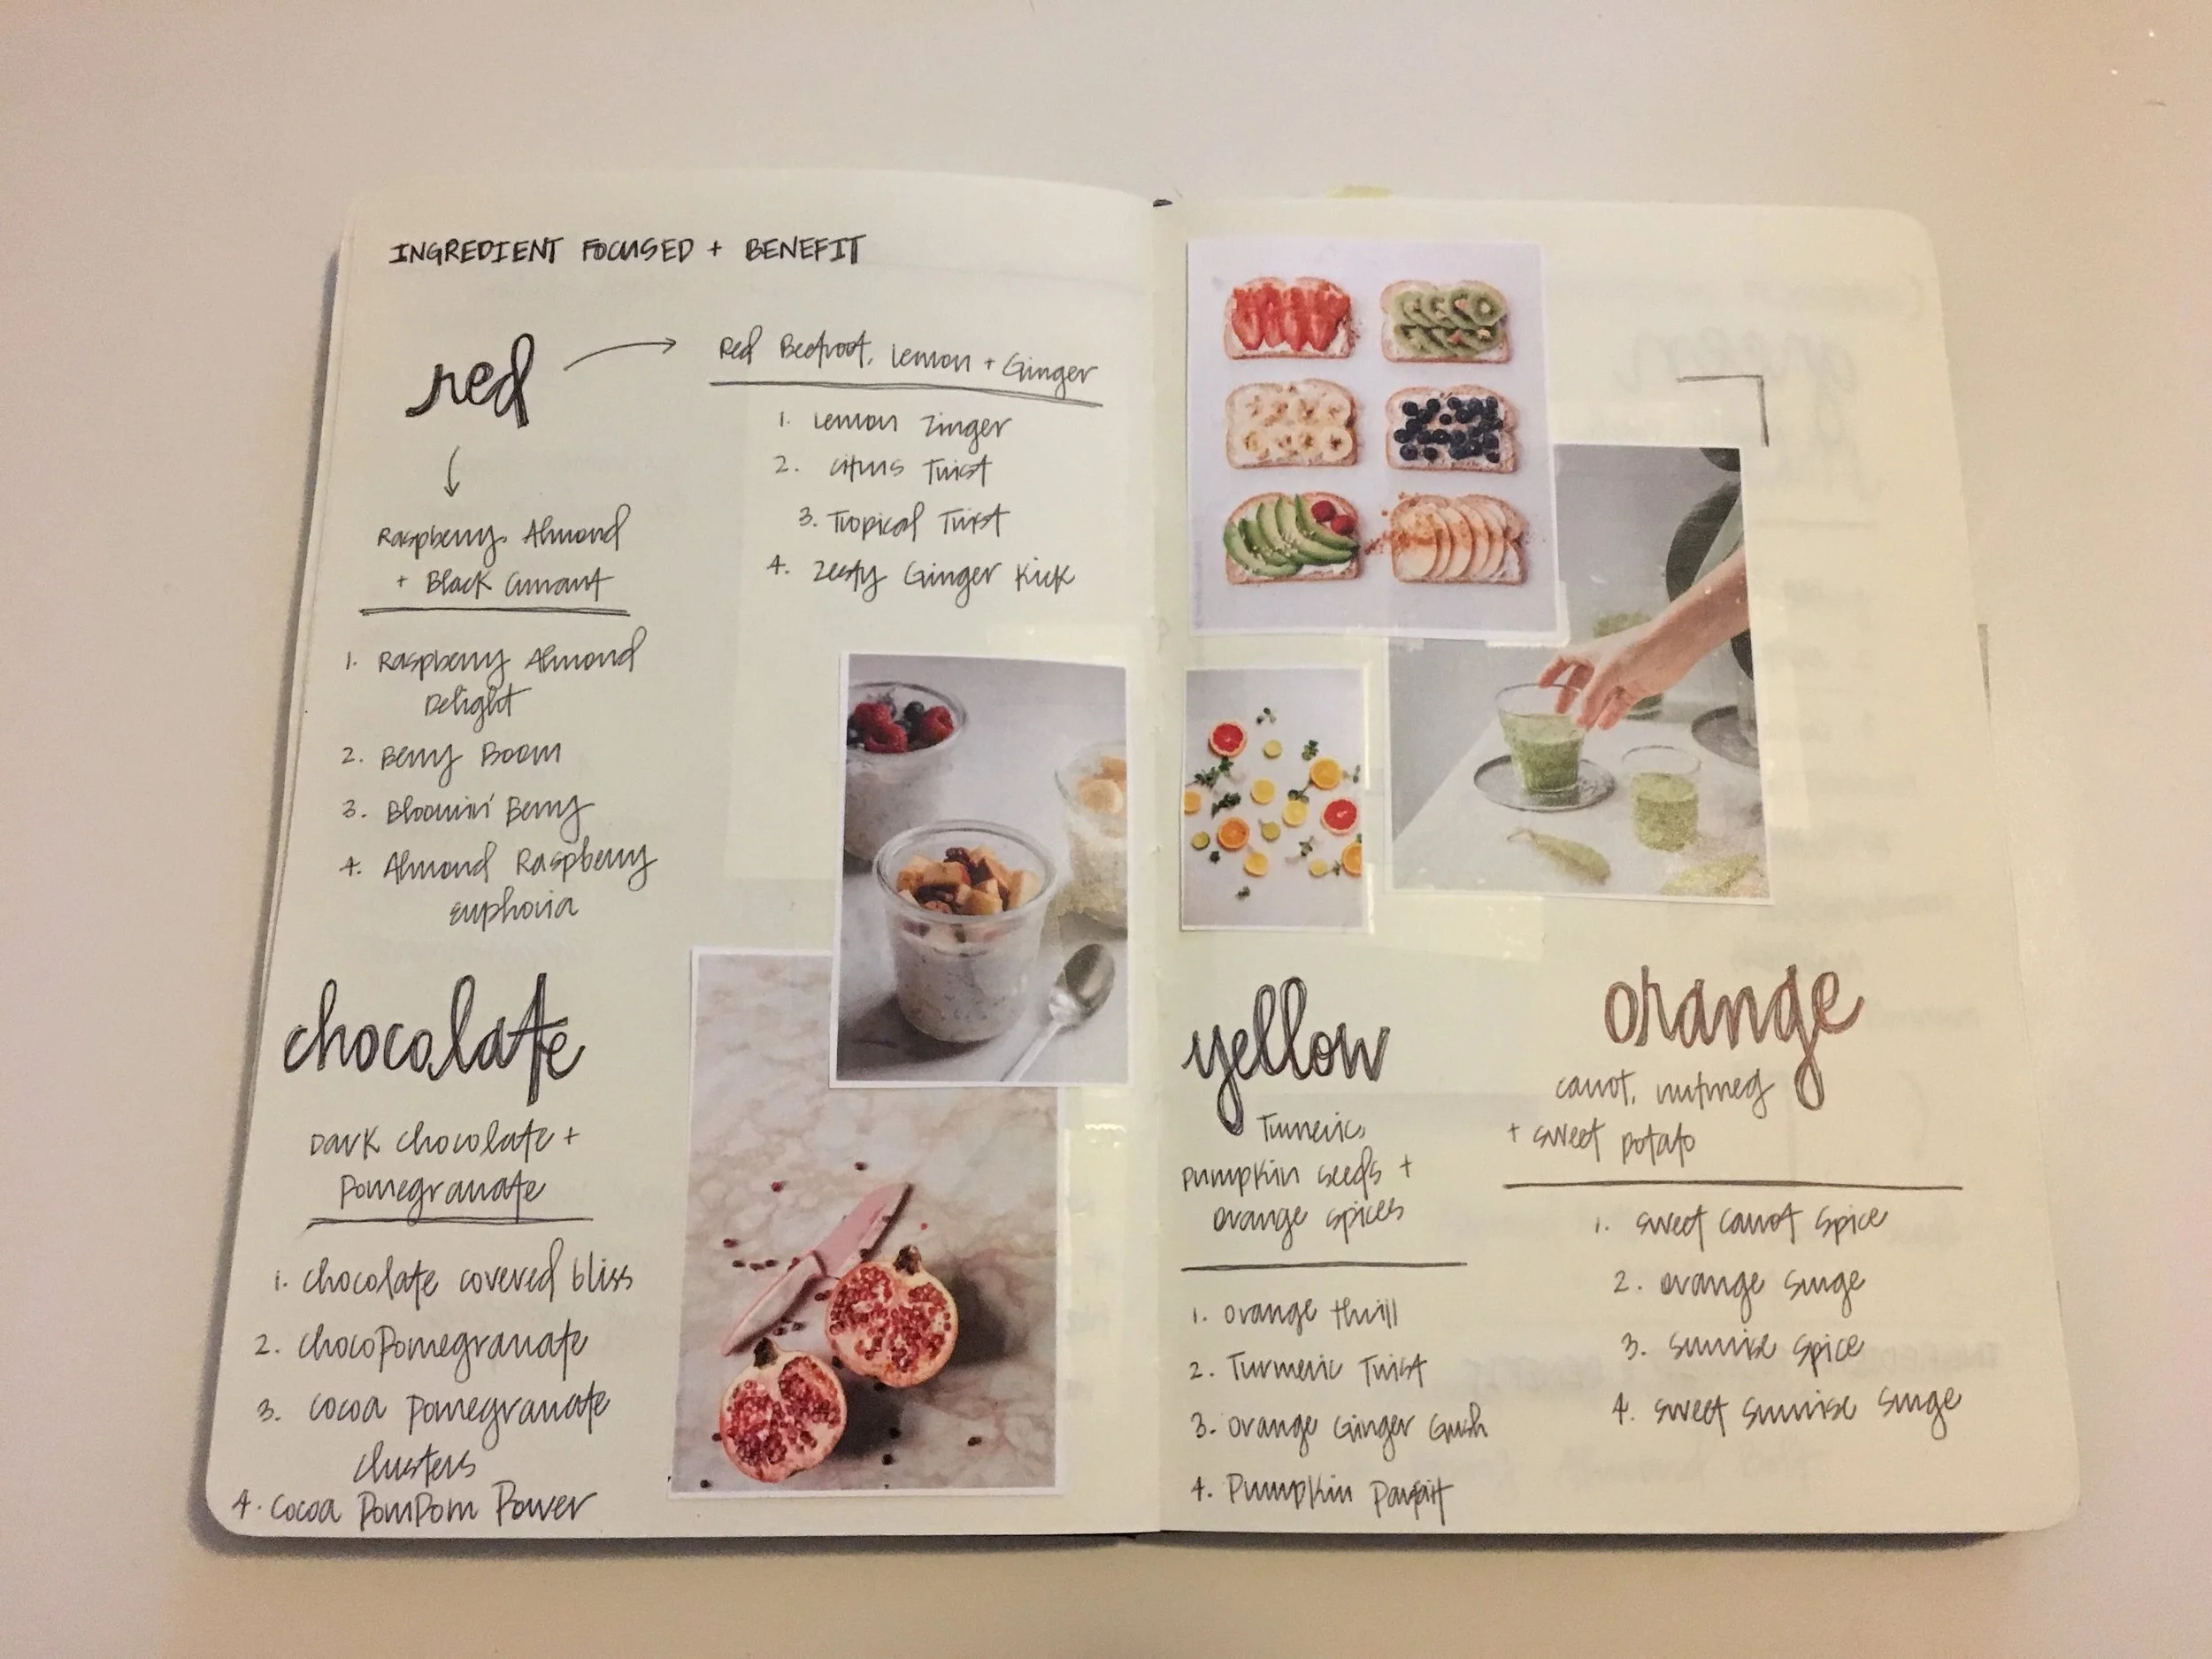 INGREDIENT FOCUSED + BENEFIT
red
Red Beetroot, Lemon + Ginger
1. Lemon Zinger
2. Citrus Twist
3. Tropical Twist
4. Zesty Ginger Kick
Raspberry, Almond
+ Black Currant
1. Raspberry Almond
Delight
2. Berry Boom
3. Bloomin' Berry
4. Almond Raspberry
Euphoria
chocolate
Dark chocolate +
Pomegranate
1. chocolate covered bliss
2. chocoPomegranate
3. cocoa pomegranate
clusters
4. cocoa PomPom Power
yellow
Tumeric,
pumpkin seeds +
orange spices
1. orange thrill
2. Turmeric Twist
3. orange Ginger Gush
4. Pumpkin Parfait
orange
carrot, nutmeg
+ sweet potato
1. sweet carrot spice
2. orange surge
3. sunrise spice
4. sweet sunrise surge